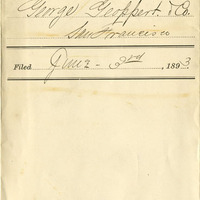 George Geoppert & Co.
San Francisco
Filed June - 3rd, 1893.